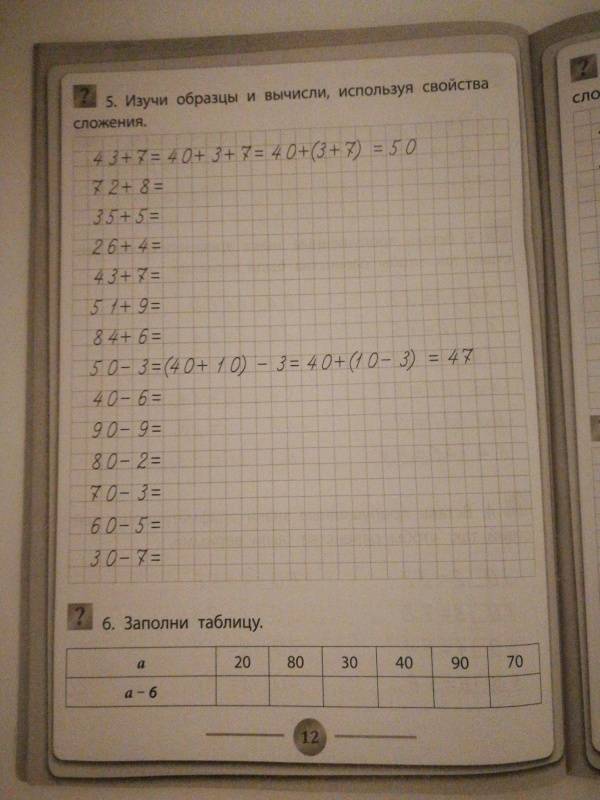 ? 5. Изучи образцы и вычисли, используя свойства
сложения.
43+7=40+3+7=40+(3+7) =50
72+8=
35+5=
26+4=
43+7=
51+9=
84+6=
50-3=(40+10) - 3=40+(10-3) =47
40-6=
90-9=
80-2=
70-3=
60-5=
30-7=
? 6. Заполни таблицу.
a 20 80 30 40 90 70
a – 6
12
?
сло